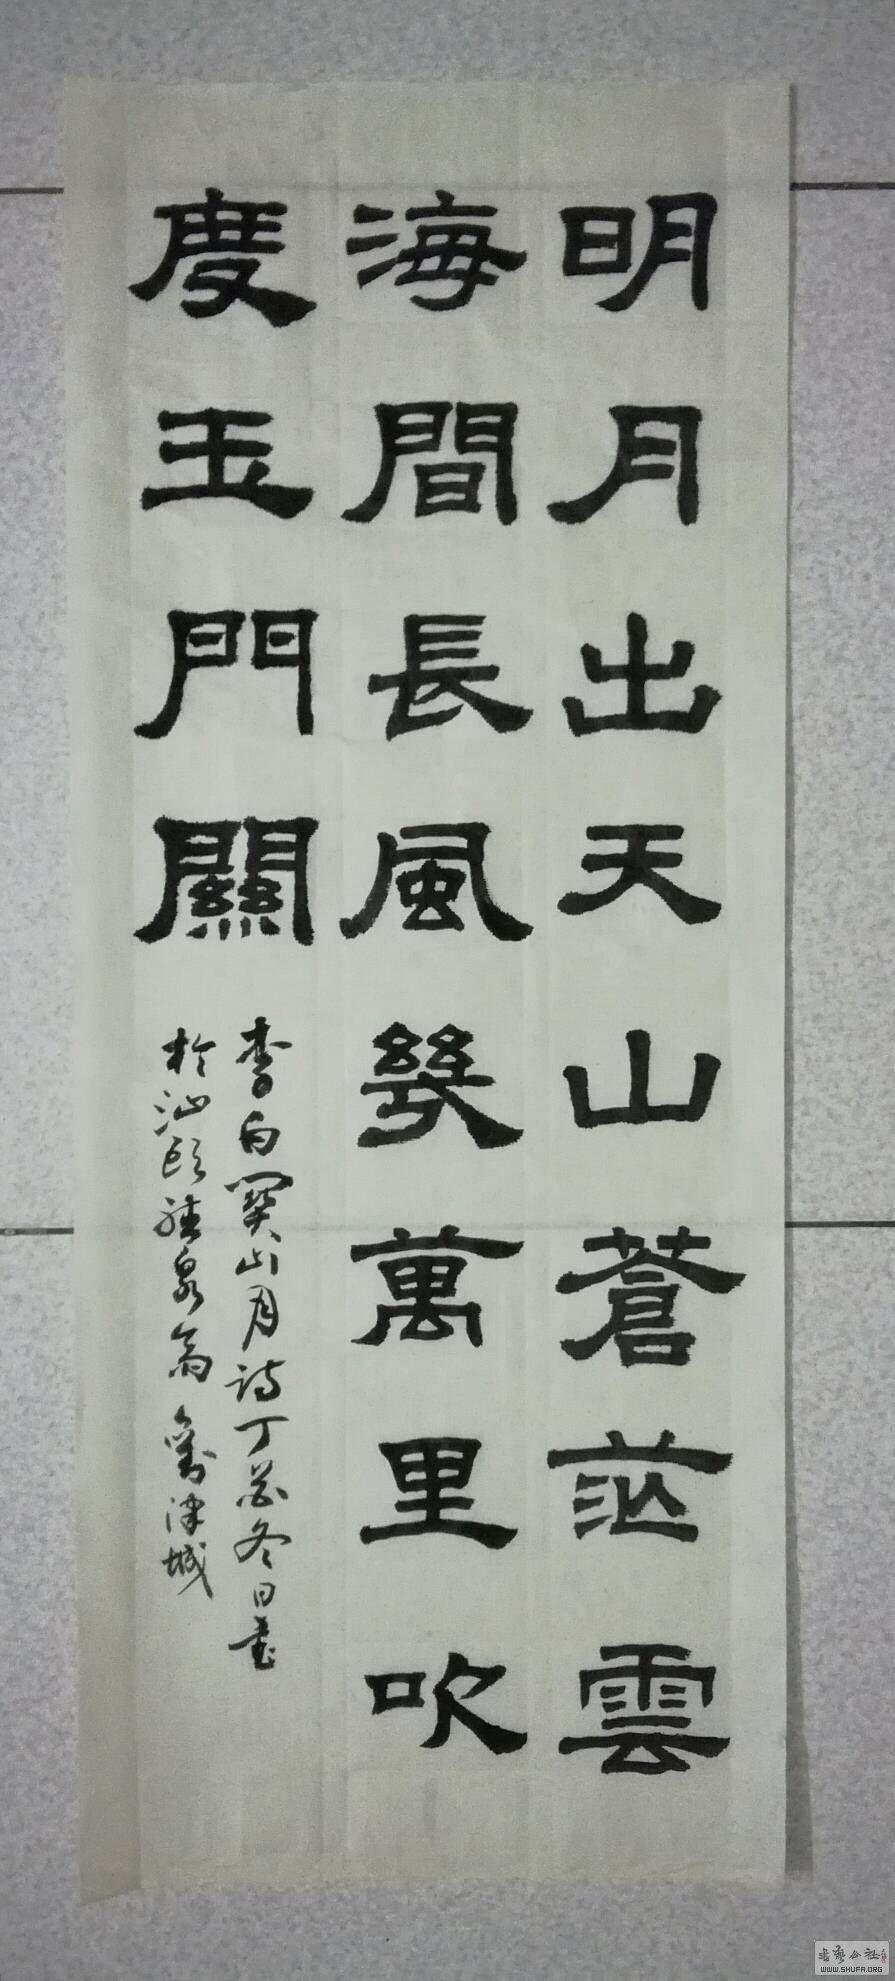 明月出天山蒼茫雲
海間長風幾萬里吹
度玉門關
李白關山月詩丁酉冬日書
於汕頭
書藝公社
WWW.SHUFA.ORG